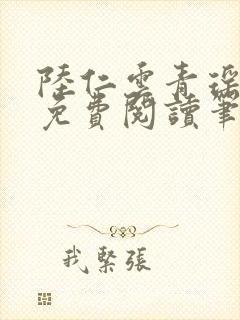 陸仁雲青瑤
免費閱讀筆
我緊張